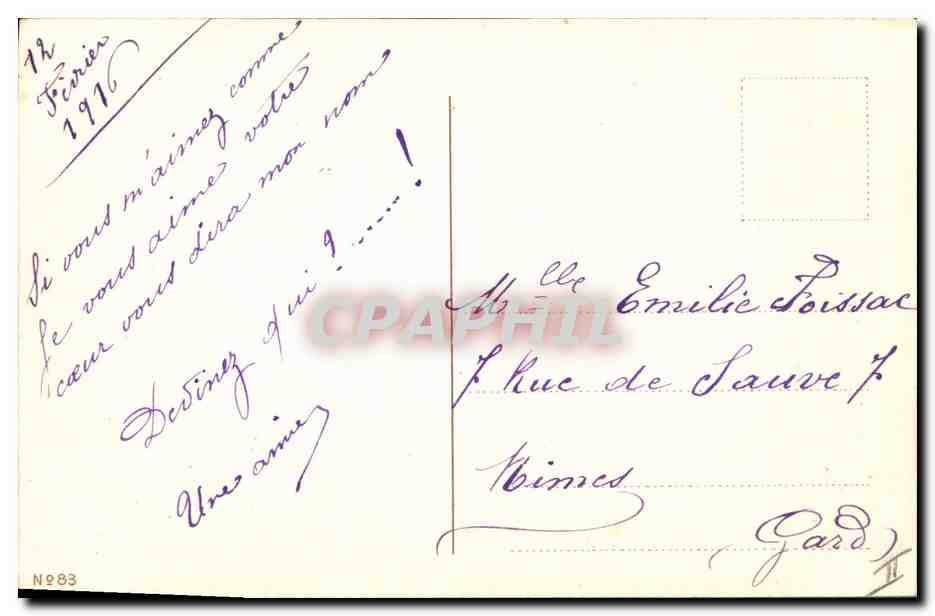 12
Février
1916
Si vous m'aimez comme
je vous aime votre
cœur vous dira mon nom
Devinez qui?.....!
Une amie
Melle Emilie Foissac
7 Rue de Sauve 7
Nimes
(Gard)
II
CPAPHIL
Nº83